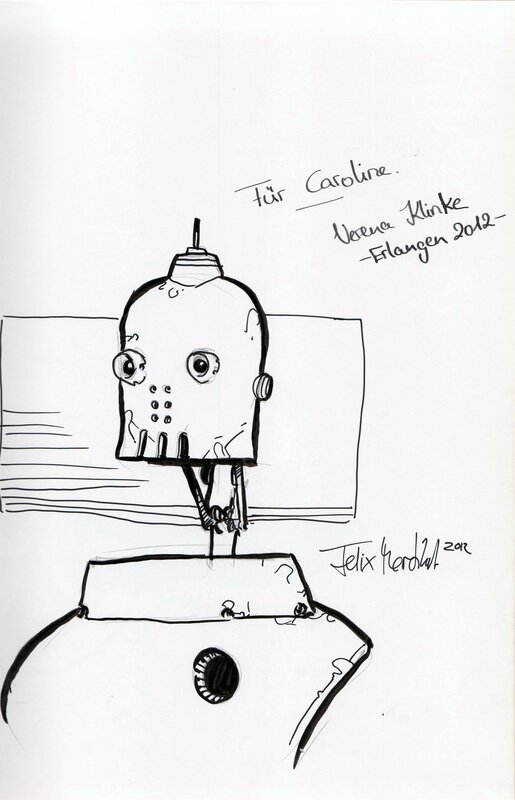 Für Caroline.
Verena Klinke
-Erlangen 2012-
Felix 2012